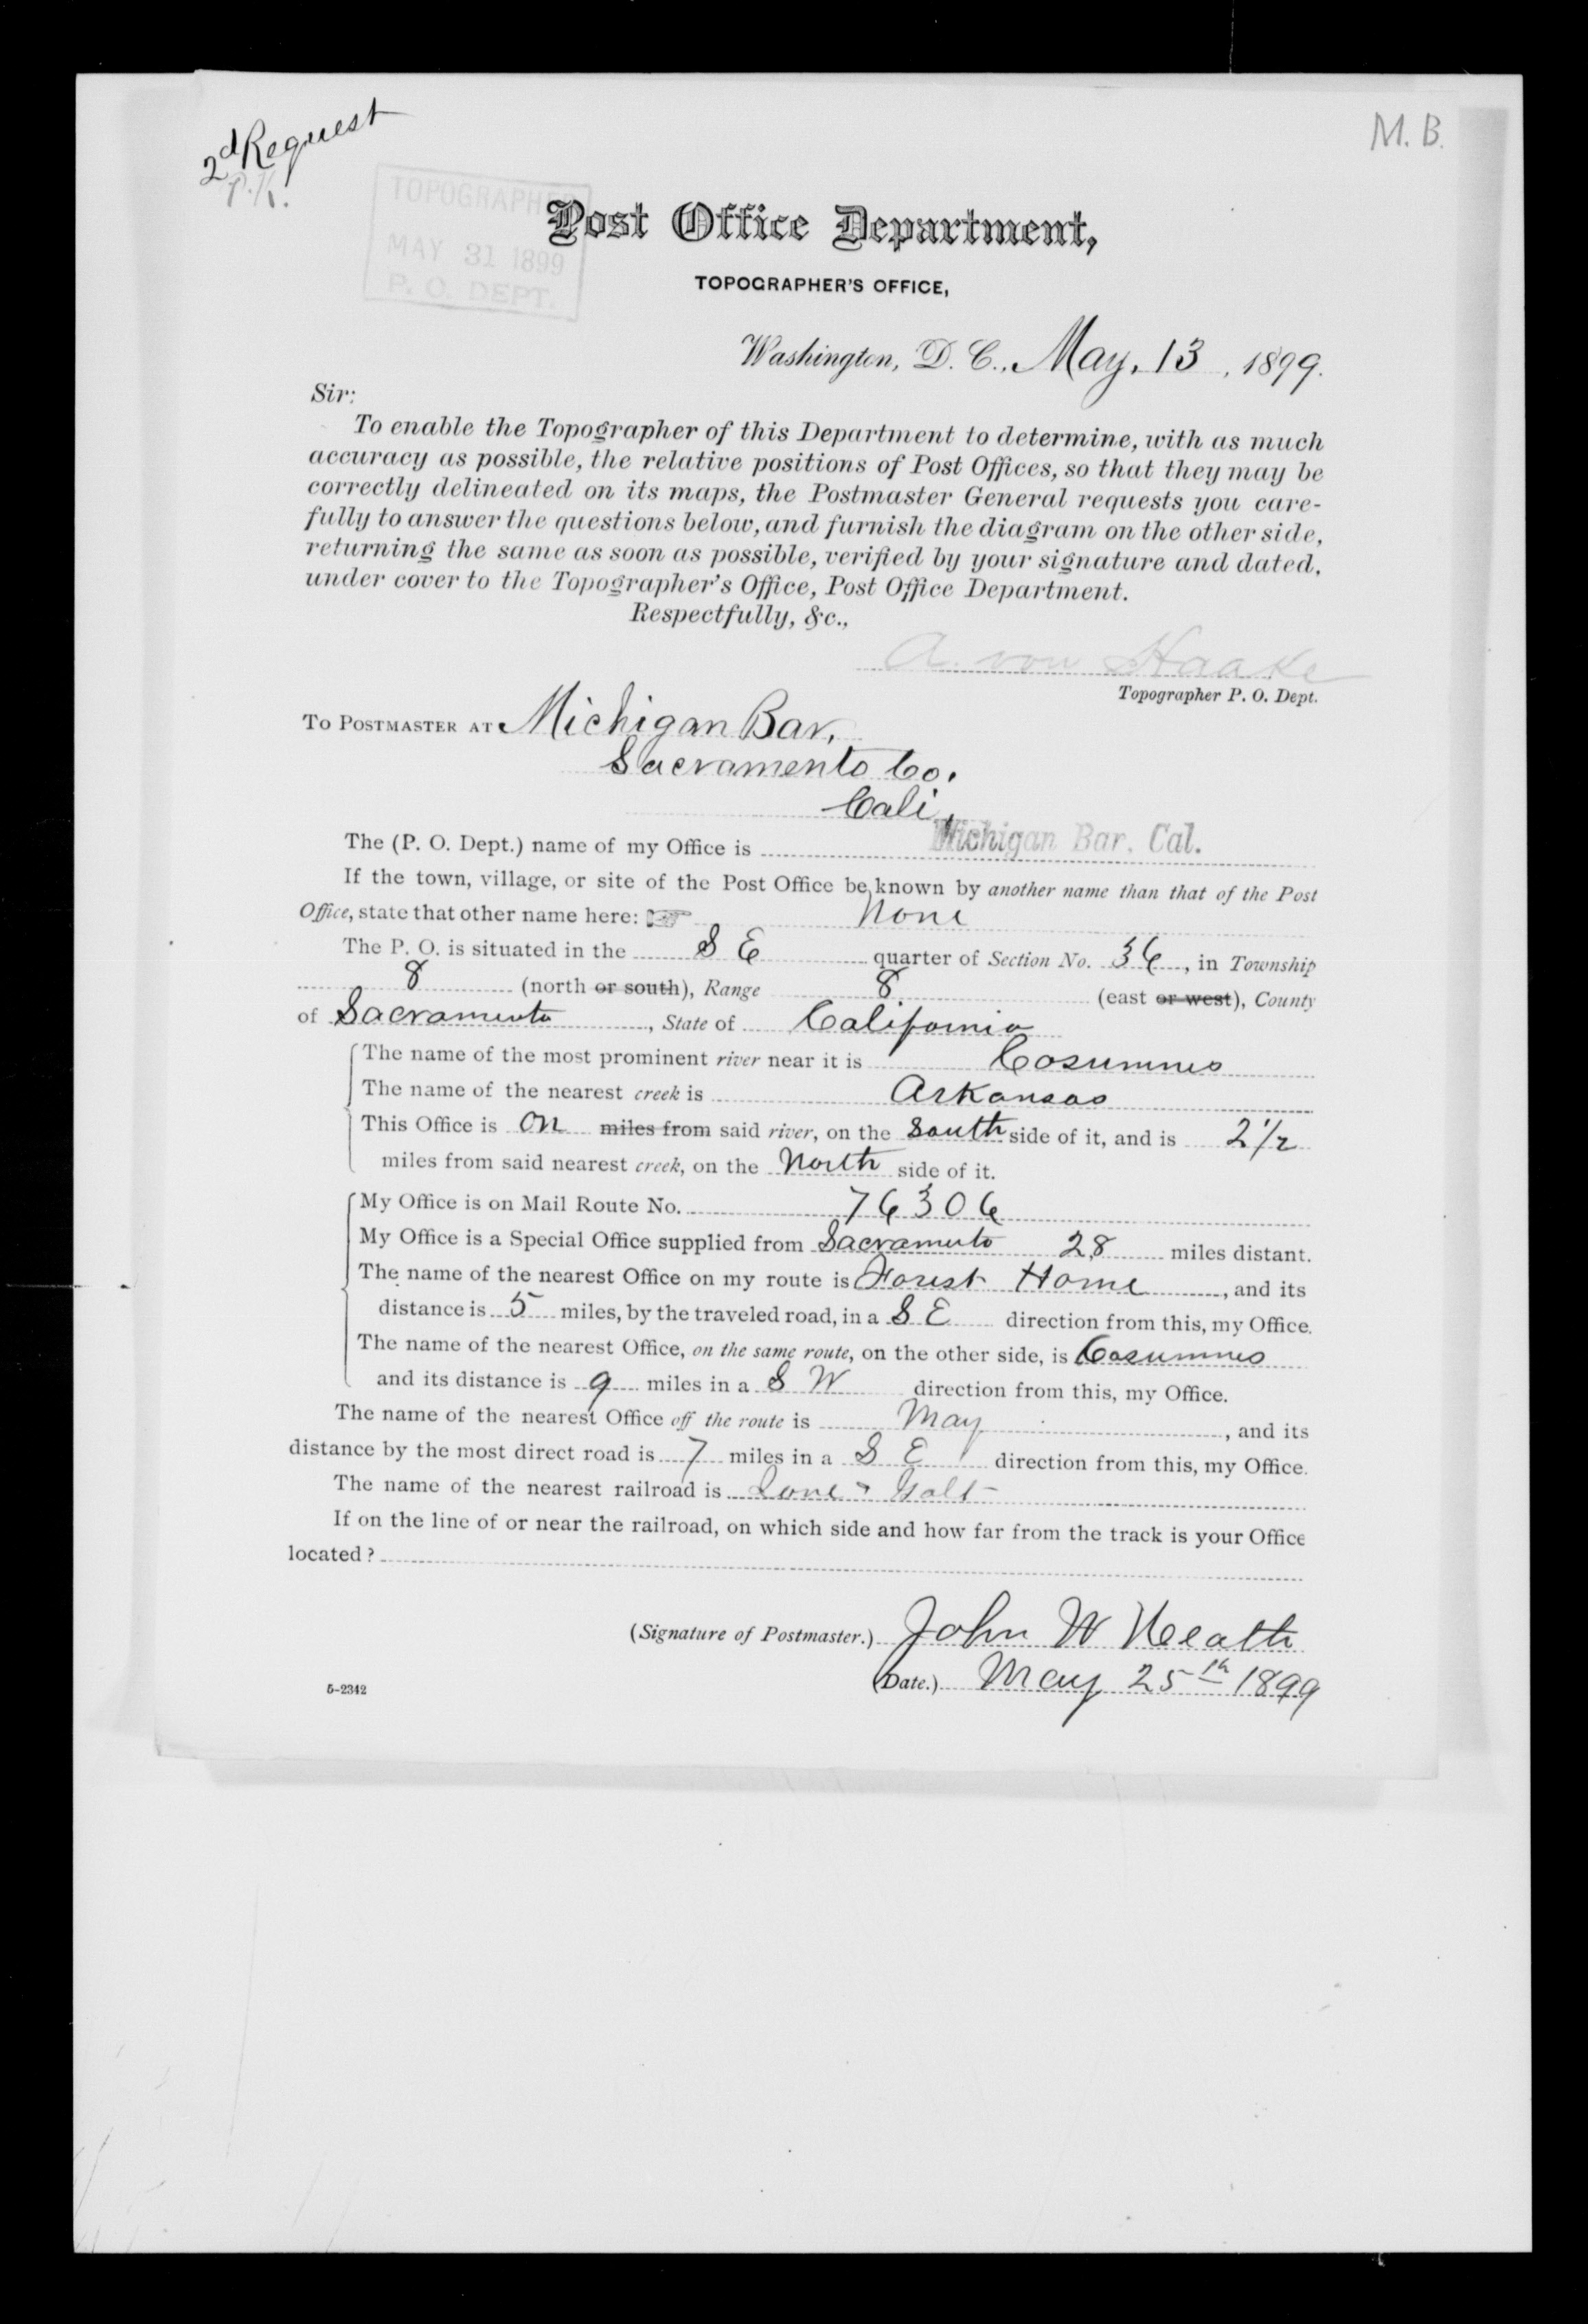 2d Request
P.K.
M. B.
TOPOGRAPHER
MAY 31 1899
P. O. DEPT.
Post Office Department,
TOPOGRAPHER'S OFFICE,
Washington, D. C., May, 13, 1899.
Sir:
To enable the Topographer of this Department to determine, with as much
accuracy as possible, the relative positions of Post Offices, so that they may be
correctly delineated on its maps, the Postmaster General requests you care-
fully to answer the questions below, and furnish the diagram on the other side,
returning the same as soon as possible, verified by your signature and dated,
under cover to the Topographer's Office, Post Office Department.
Respectfully, &c.,
A. von Haake
Topographer P. O. Dept.
To Postmaster at Michigan Bar,
Sacramento Co.
Cali,
The (P. O. Dept.) name of my Office is Michigan Bar, Cal.
If the town, village, or site of the Post Office be known by another name than that of the Post
Office, state that other name here: ☞ None
The P. O. is situated in the S E quarter of Section No. 36, in Township
8 (north or south), Range 8 (east or west), County
of Sacramento, State of California
The name of the most prominent river near it is Cosumnes
The name of the nearest creek is Arkansas
This Office is on miles from said river, on the South side of it, and is 2 1/2
miles from said nearest creek, on the North side of it.
My Office is on Mail Route No. 76306
My Office is a Special Office supplied from Sacramento 28 miles distant.
The name of the nearest Office on my route is Forest Home, and its
distance is 5 miles, by the traveled road, in a S E direction from this, my Office.
The name of the nearest Office, on the same route, on the other side, is Cosumnes
and its distance is 9 miles in a S W direction from this, my Office.
The name of the nearest Office off the route is May, and its
distance by the most direct road is 7 miles in a S E direction from this, my Office.
The name of the nearest railroad is Ione & Galt
If on the line of or near the railroad, on which side and how far from the track is your Office
located?
(Signature of Postmaster.) John W Heath
(Date.) May 25th 1899
5-2342